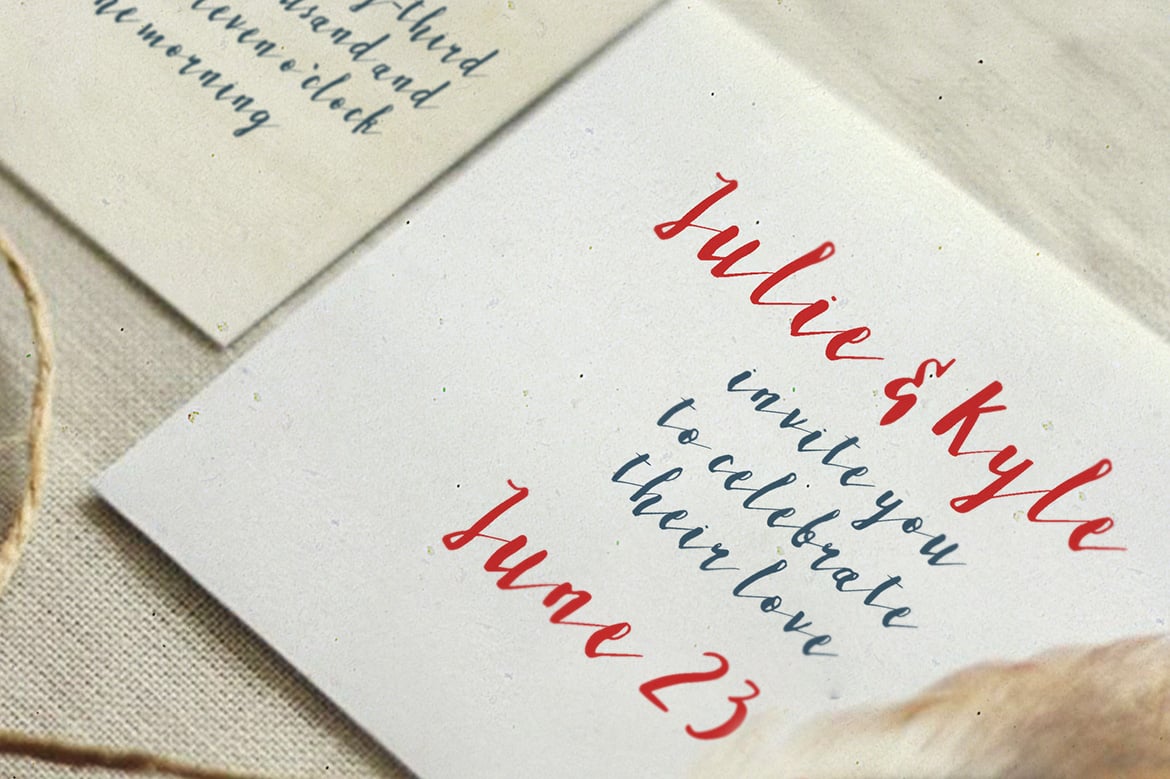 y-third
usand and
leven o'clock
he morning
Julie & Kyle
invite you
to celebrate
their love
June 23